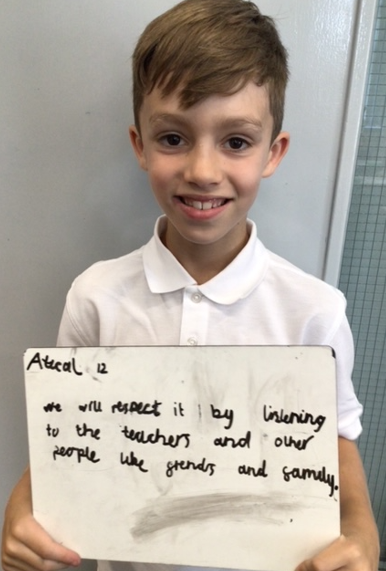 Atical 12
we will respect it by listening
to the teachers and other
people like grends and gamily.